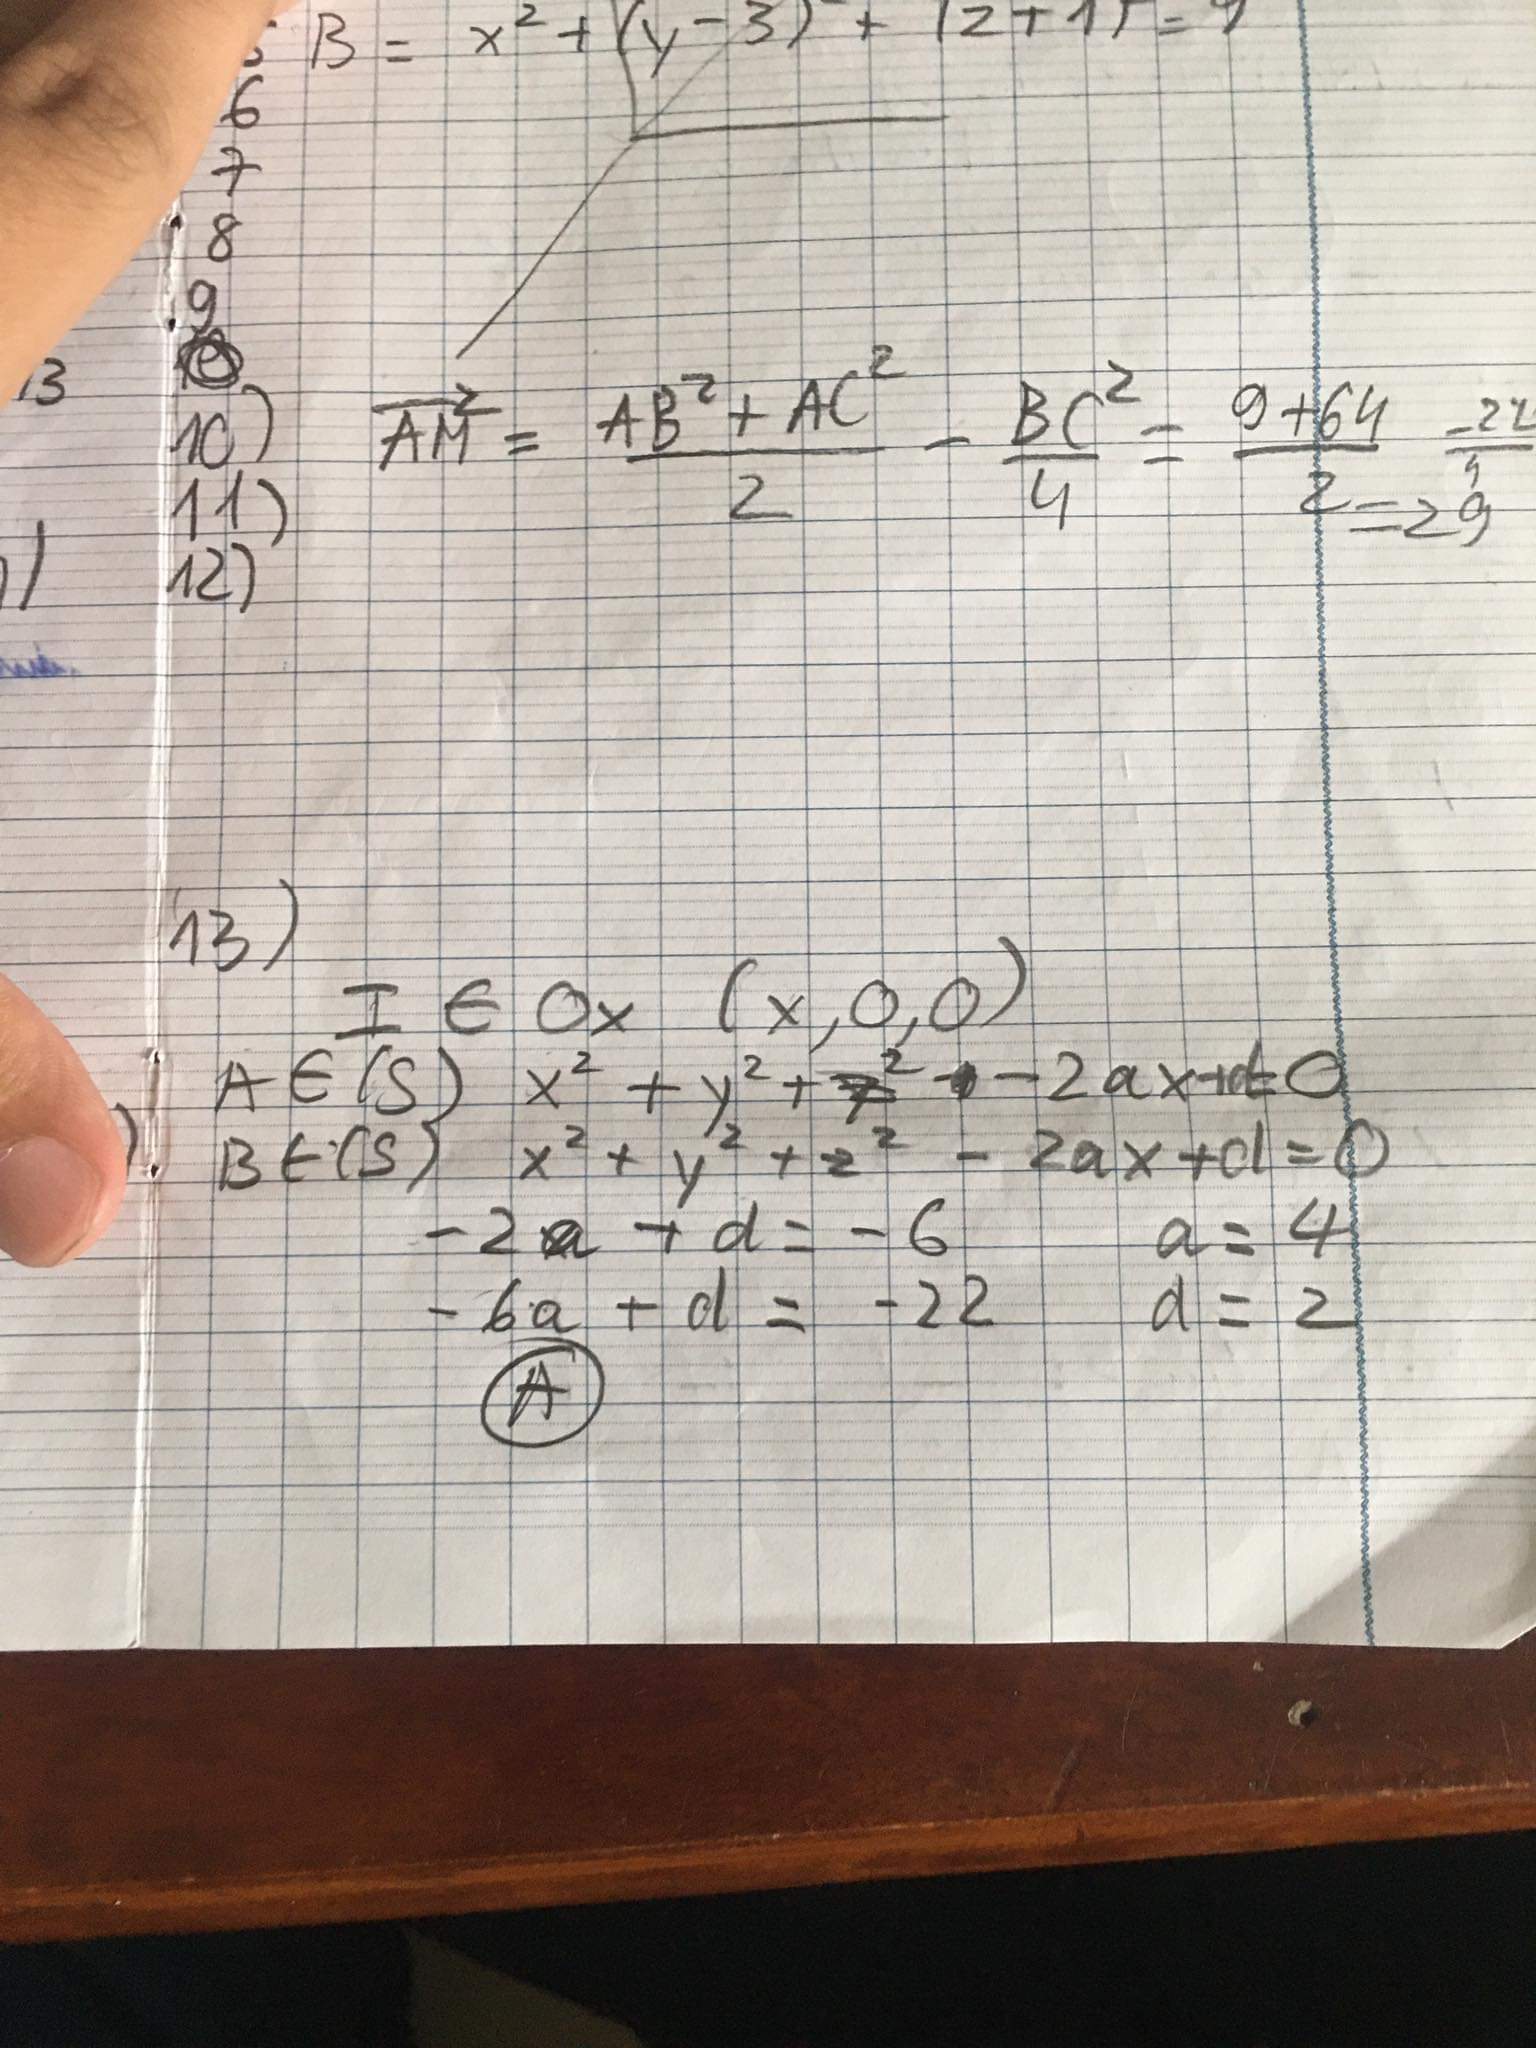 5 B = x² + (y - 3)² + (z + 1)² = 9
6
7
8
9
13
10) AM² = AB² + AC² / 2 - BC² / 4 = 9 + 64 / 2 - 22 / 4 = 29
11)
12)
13)
I ∈ Ox (x, 0, 0)
A ∈ (S) x² + y² + z² - 2ax + d = 0
B ∈ (S) x² + y² + z² - 2ax + d = 0
-2a + d = -6 a = 4
-6a + d = -22 d = 2
A